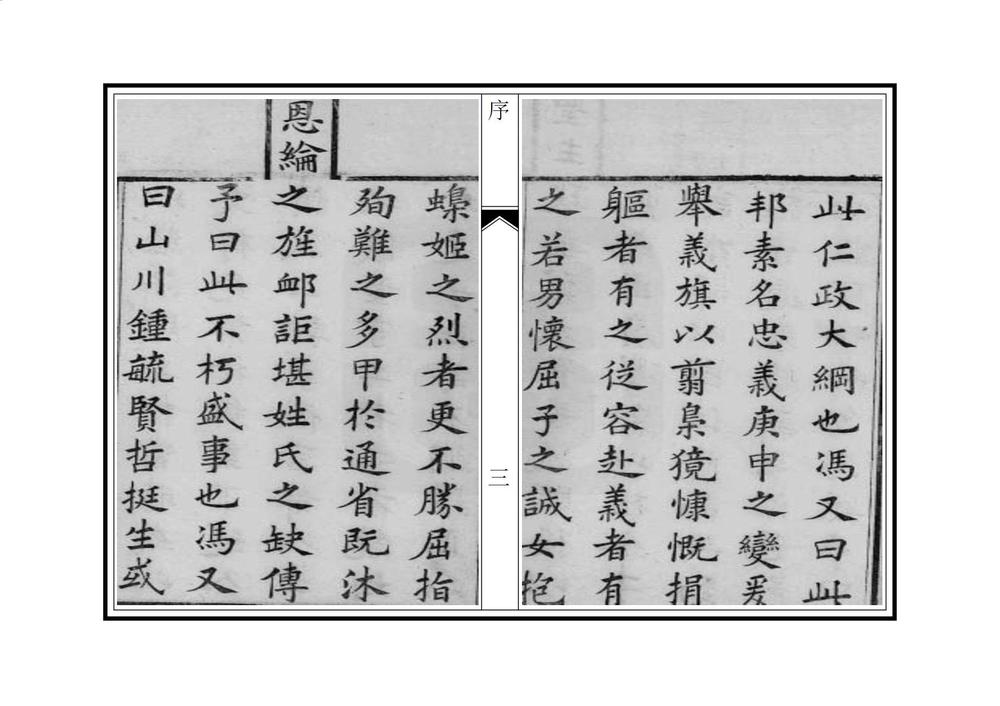 此仁政大綱也馮又曰此
邦素名忠義庚申之變爰
舉義旗以翦梟獍慷慨捐
軀者有之從容赴義者有
之若男懷屈子之誠女抱
序
三
蟂姬之烈者更不勝屈指
殉難之多甲於通省既沐
恩綸
之旌卹詎堪姓氏之缺傳
予曰此不朽盛事也馮又
曰山川鍾毓賢哲挺生或